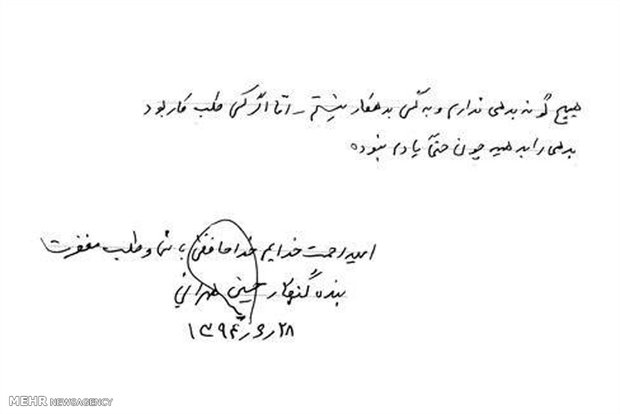 هیچ گونه بدهی ندارم و به کسی بدهکار نیستم – اما اگر کسی طلب کار بود
بدهی را بدهید چون حتماً یادم نبوده
امید رحمت خدایم خداحافظی با شما و طلب مغفرت
بنده گنهکار حسینی طهرانی
۲۸ر۶ر۱۳۹۴
MEHR NEWSAGENCY